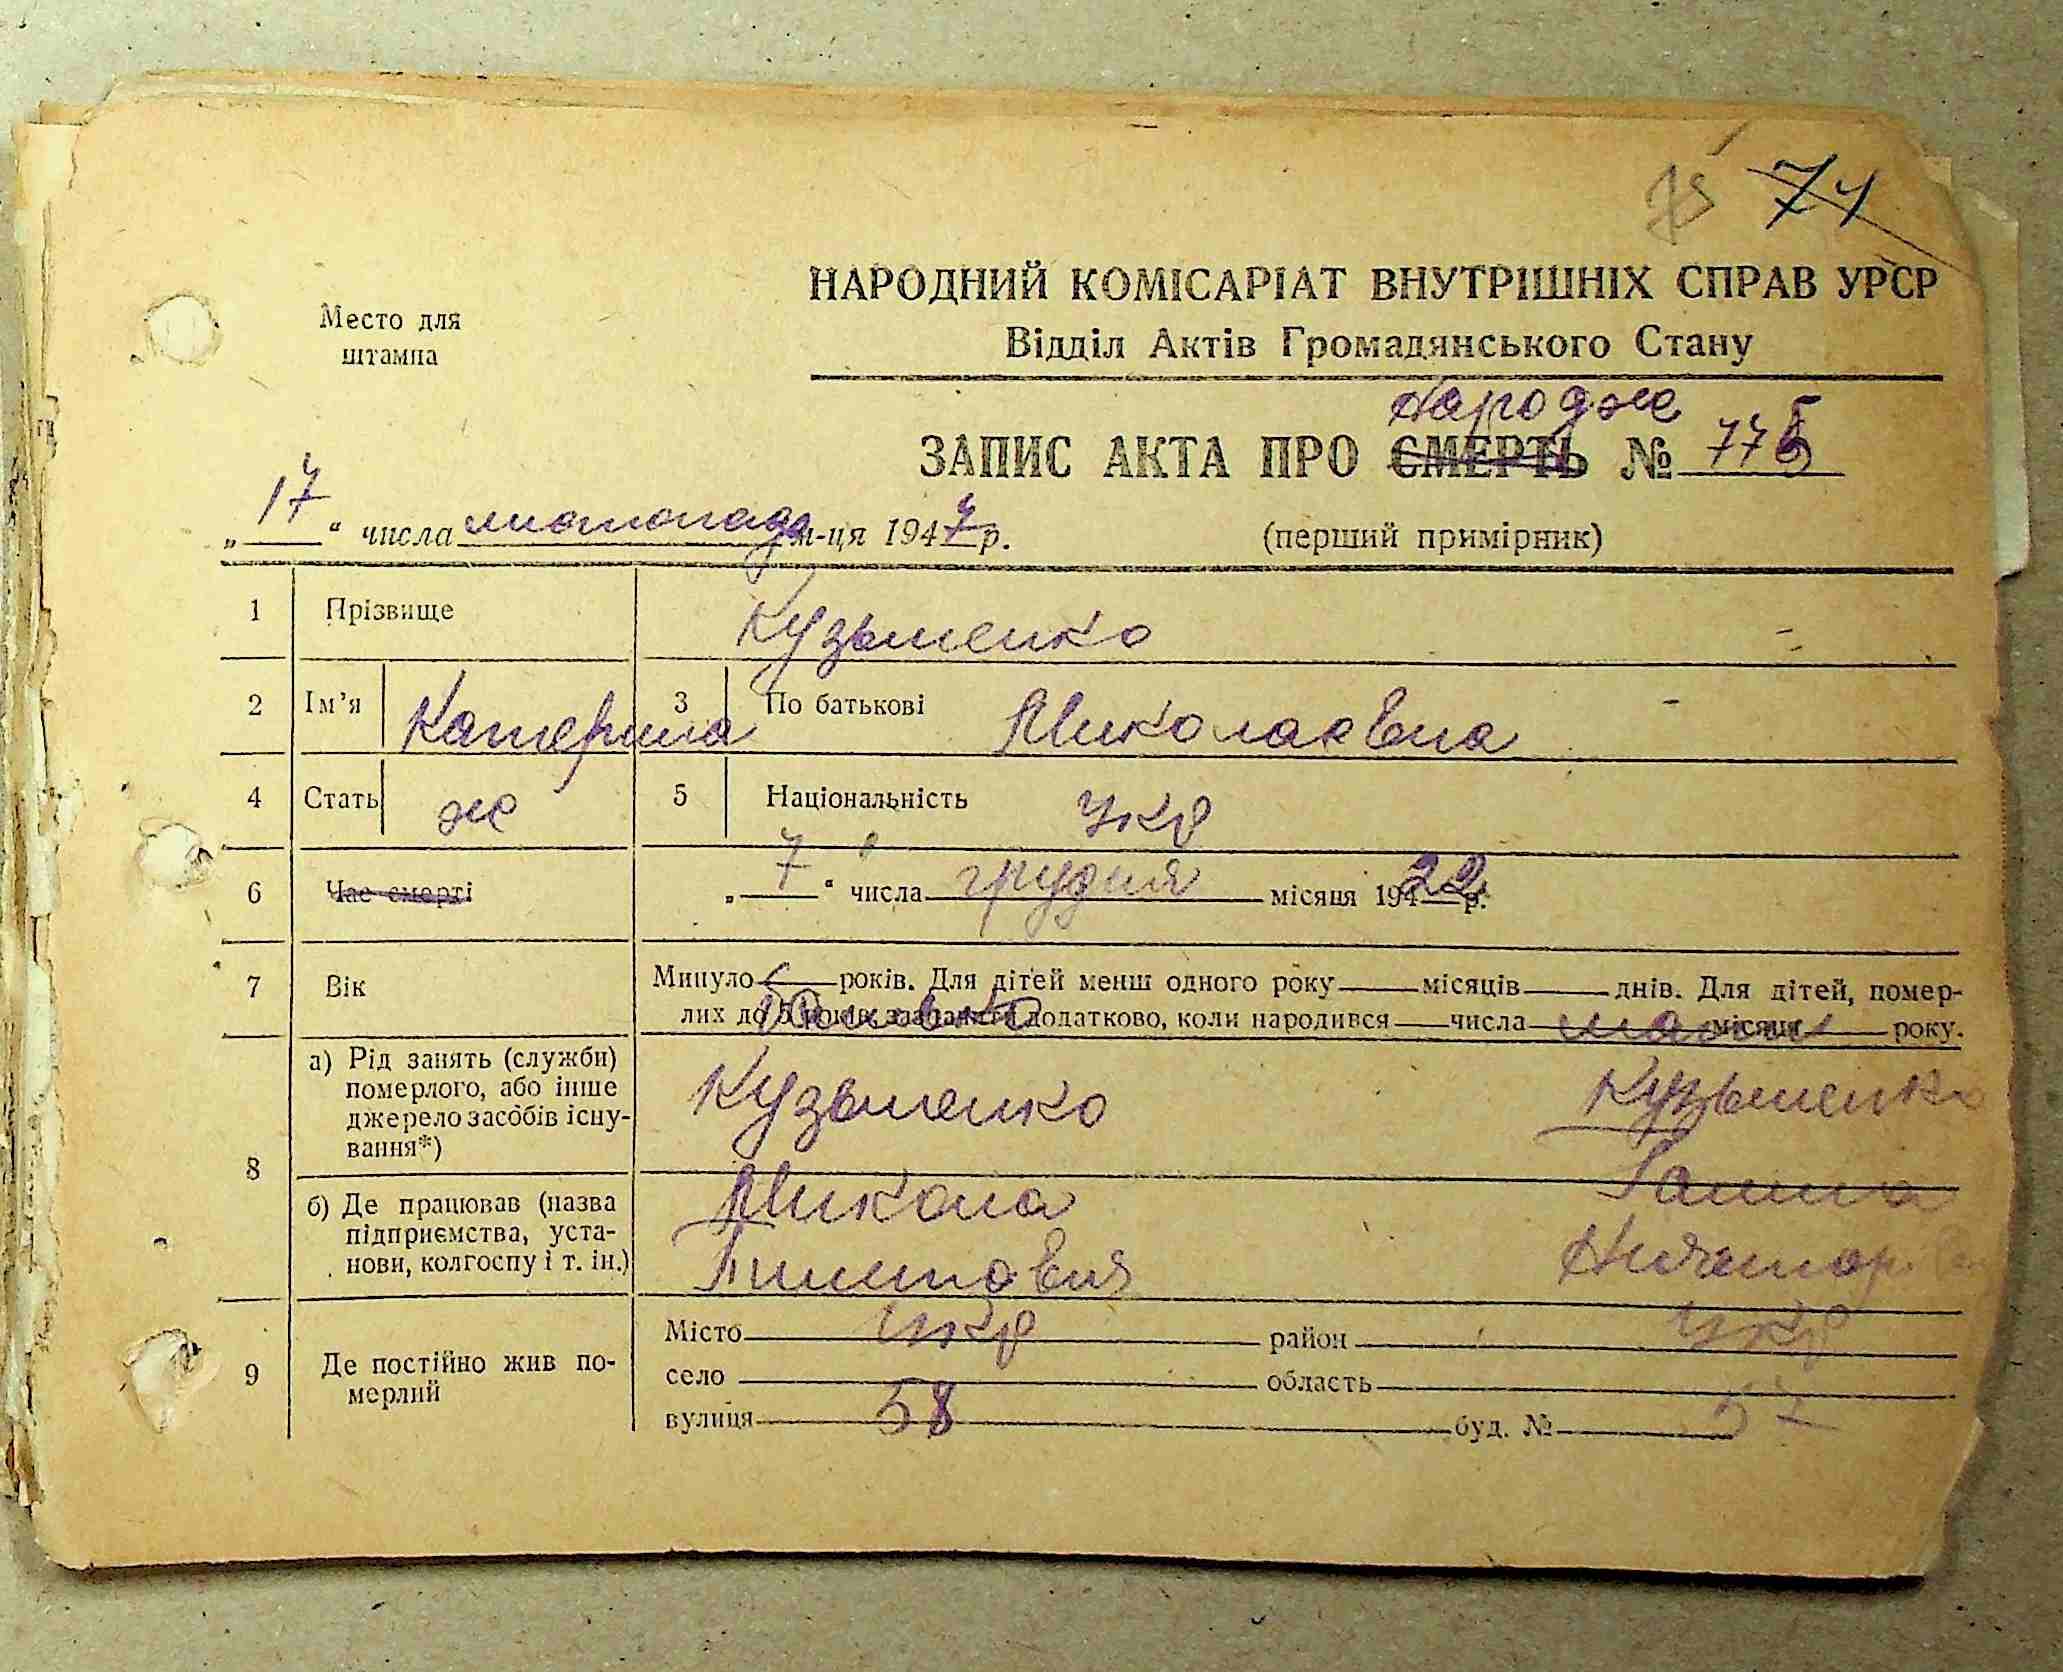 75 71
НАРОДНИЙ КОМІСАРІАТ ВНУТРІШНІХ СПРАВ УРСР
Место для штампа
Відділ Актів Громадянського Стану
народж
ЗАПИС АКТА ПРО СМЕРТЬ № 775
„17“ числа листопада м-ця 1947 р. (перший примірник)
1 Прізвище Кузьменко
2 Ім'я Катерина 3 По батькові Миколаевна
4 Стать ж 5 Національність Укр
6 Час смерті „7“ числа грудня місяця 1922 р.
7 Вік Минуло років. Для дітей менш одного року місяців днів. Для дітей, помер-
лих до 5 років, зазначити додатково, коли народився числа місяця року.
8 а) Рід занять (служби) померлого, або інше джерело засобів існування*) Кузьменко Кузьменко
б) Де працював (назва підприємства, установи, колгоспу і т. ін.) Микола Ганна
9 Де постійно жив померлий
Місто Укр район Укр
село область
вулиця 58 буд. № 57